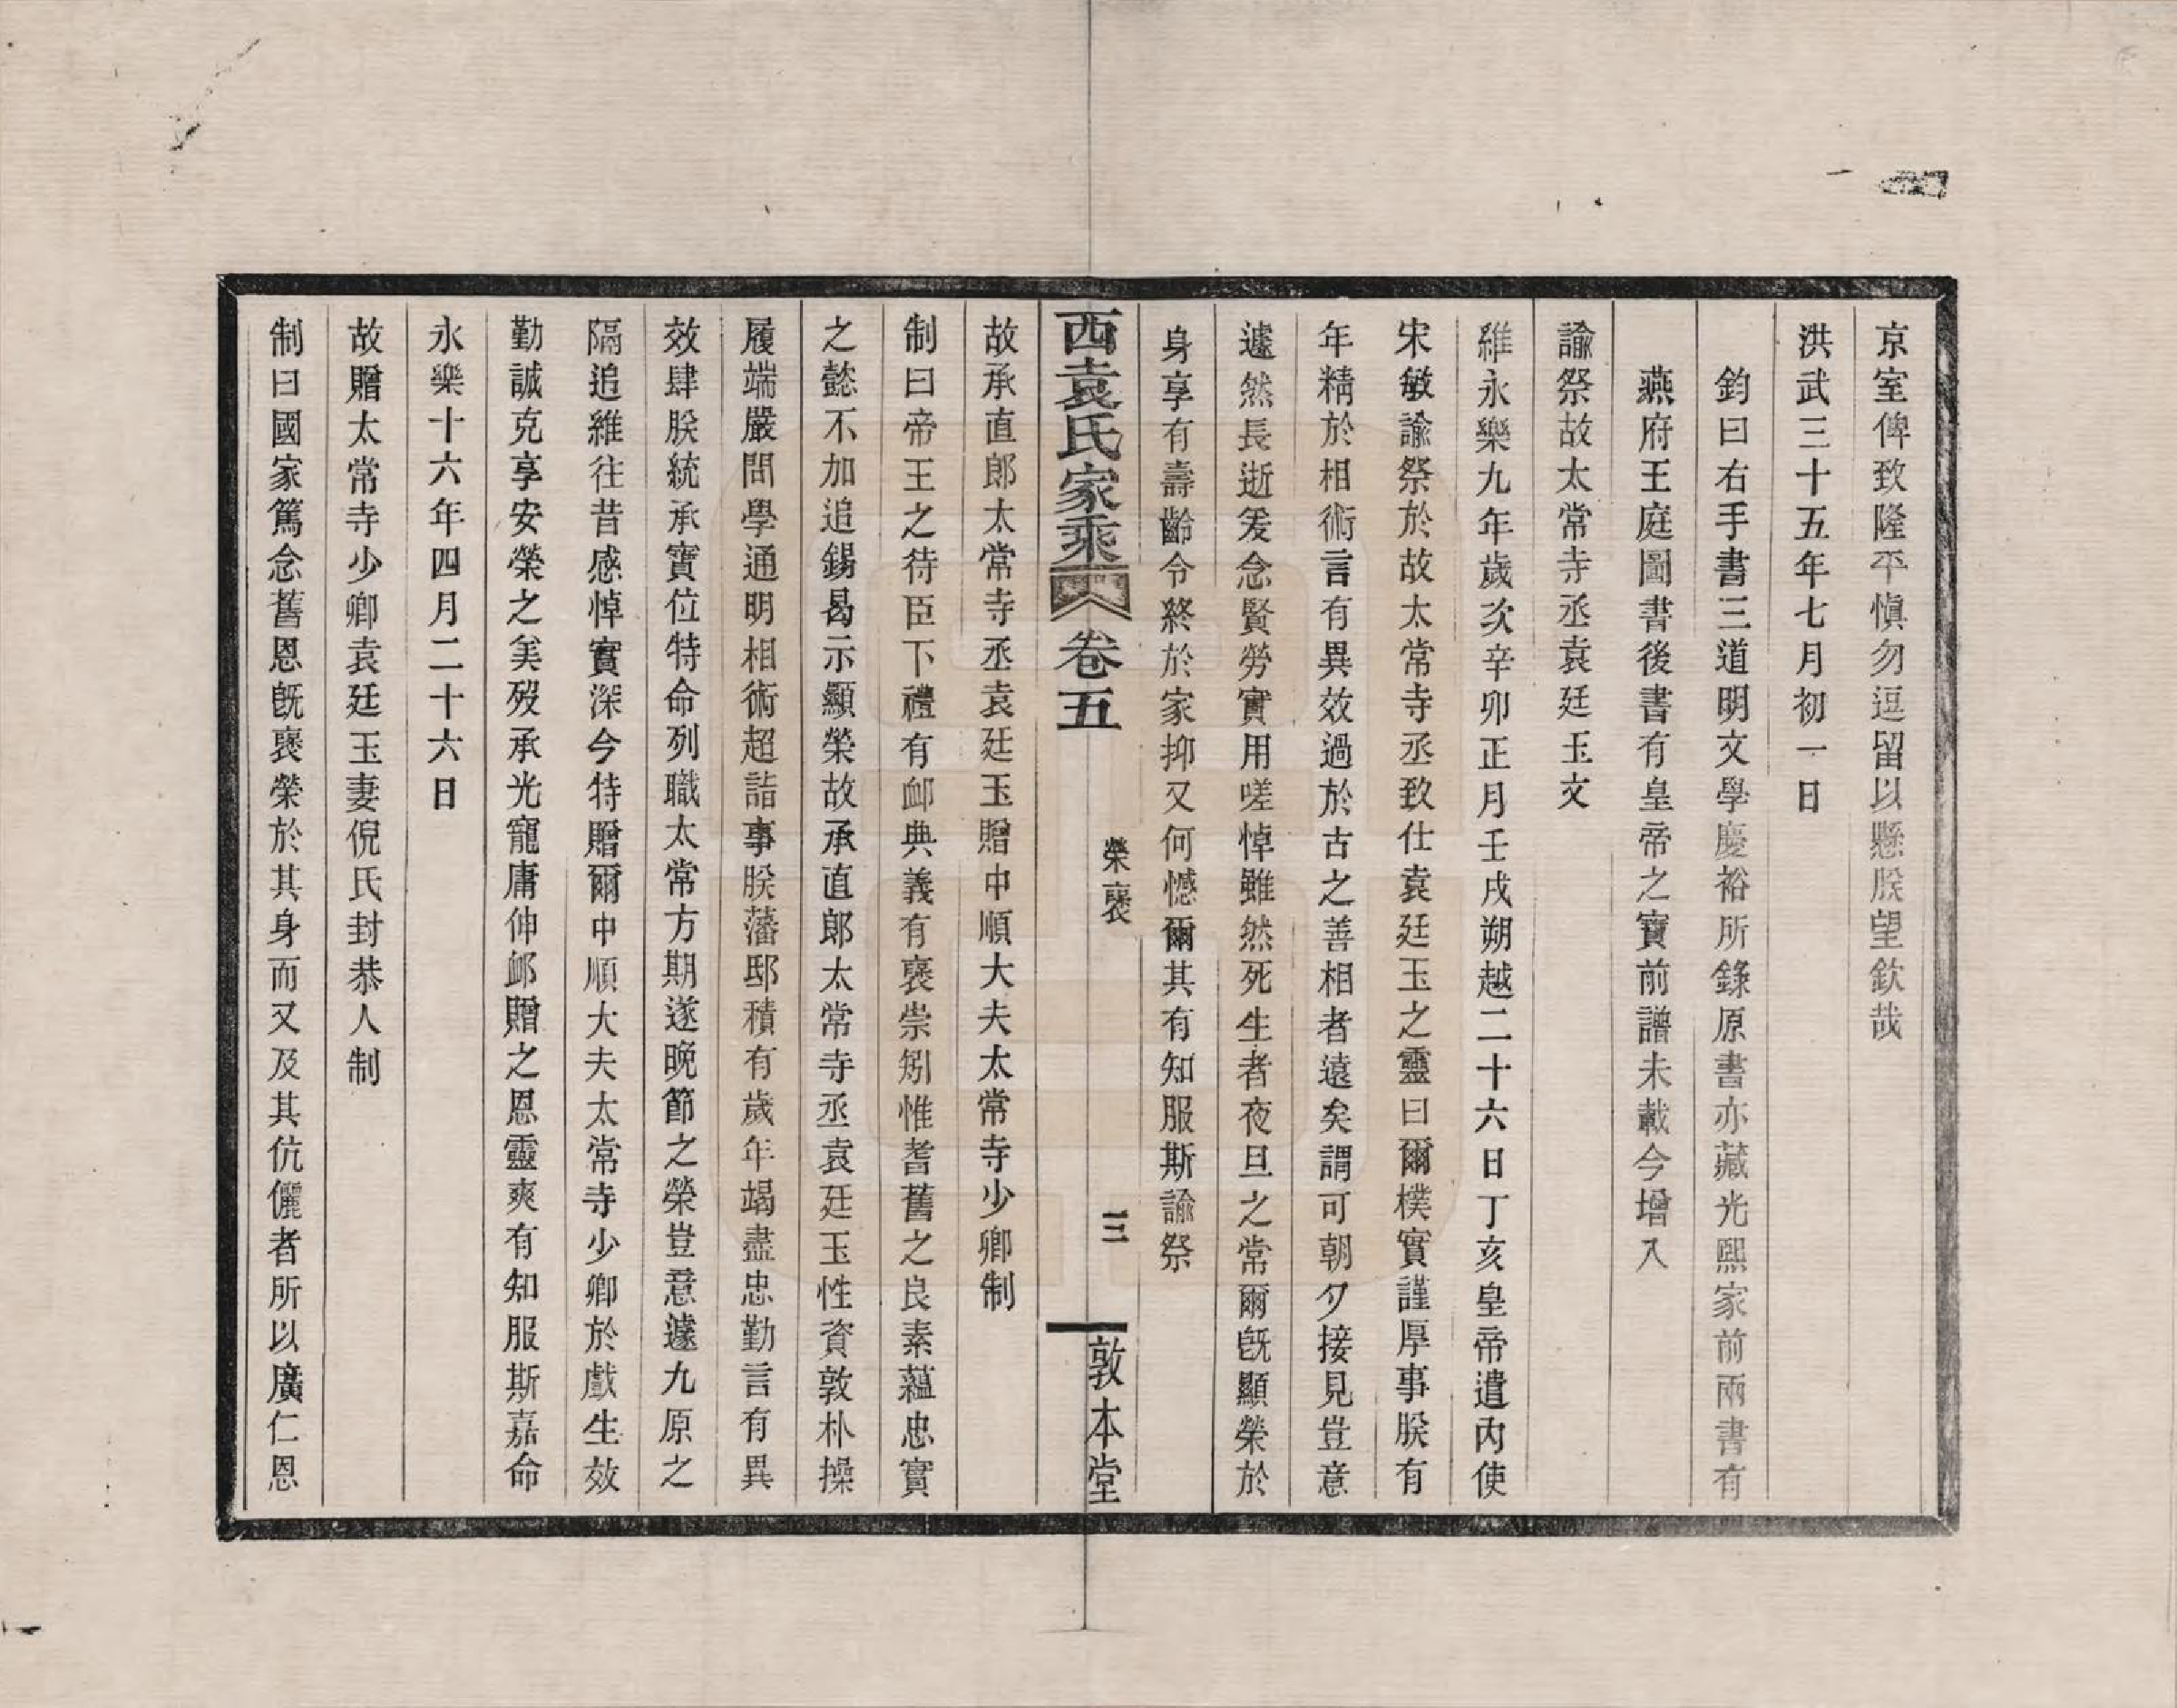 京室俾致隆平愼勿逗留以懸朕望欽哉
洪武三十五年七月初一日
鈞曰右手書三道明文學慶裕所錄原書亦藏光熙家前兩書有
燕府王庭圖書後書有皇帝之寶前譜未載今增入
諭祭故太常寺丞袁廷玉文
維永樂九年歲次辛卯正月壬戌朔越二十六日丁亥皇帝遣內使
宋敏諭祭於故太常寺丞致仕袁廷玉之靈曰爾樸實謹厚事朕有
年精於相術言有異效過於古之善相者遠矣謂可朝夕接見豈意
遽然長逝爰念賢勞實用嗟悼雖然死生者夜旦之常爾旣顯榮於
身享有壽齡令終於家抑又何憾爾其有知服斯諭祭
西袁氏家乘 卷五 榮襃 三 敦本堂
故承直郎太常寺丞袁廷玉贈中順大夫太常寺少卿制
制曰帝王之待臣下禮有卹典義有襃崇矧惟耆舊之良素蘊忠實
之懿不加追錫曷示顯榮故承直郎太常寺丞袁廷玉性資敦朴操
履端嚴問學通明相術超詣事朕藩邸積有歲年竭盡忠勤言有異
效肆朕統承寶位特命列職太常方期遂晚節之榮豈意遽九原之
隔追維往昔感悼實深今特贈爾中順大夫太常寺少卿於戲生效
勤誠克享安榮之美歿承光寵庸伸卹贈之恩靈爽有知服斯嘉命
永樂十六年四月二十六日
故贈太常寺少卿袁廷玉妻倪氏封恭人制
制曰國家篤念舊恩旣襃榮於其身而又及其伉儷者所以廣仁恩